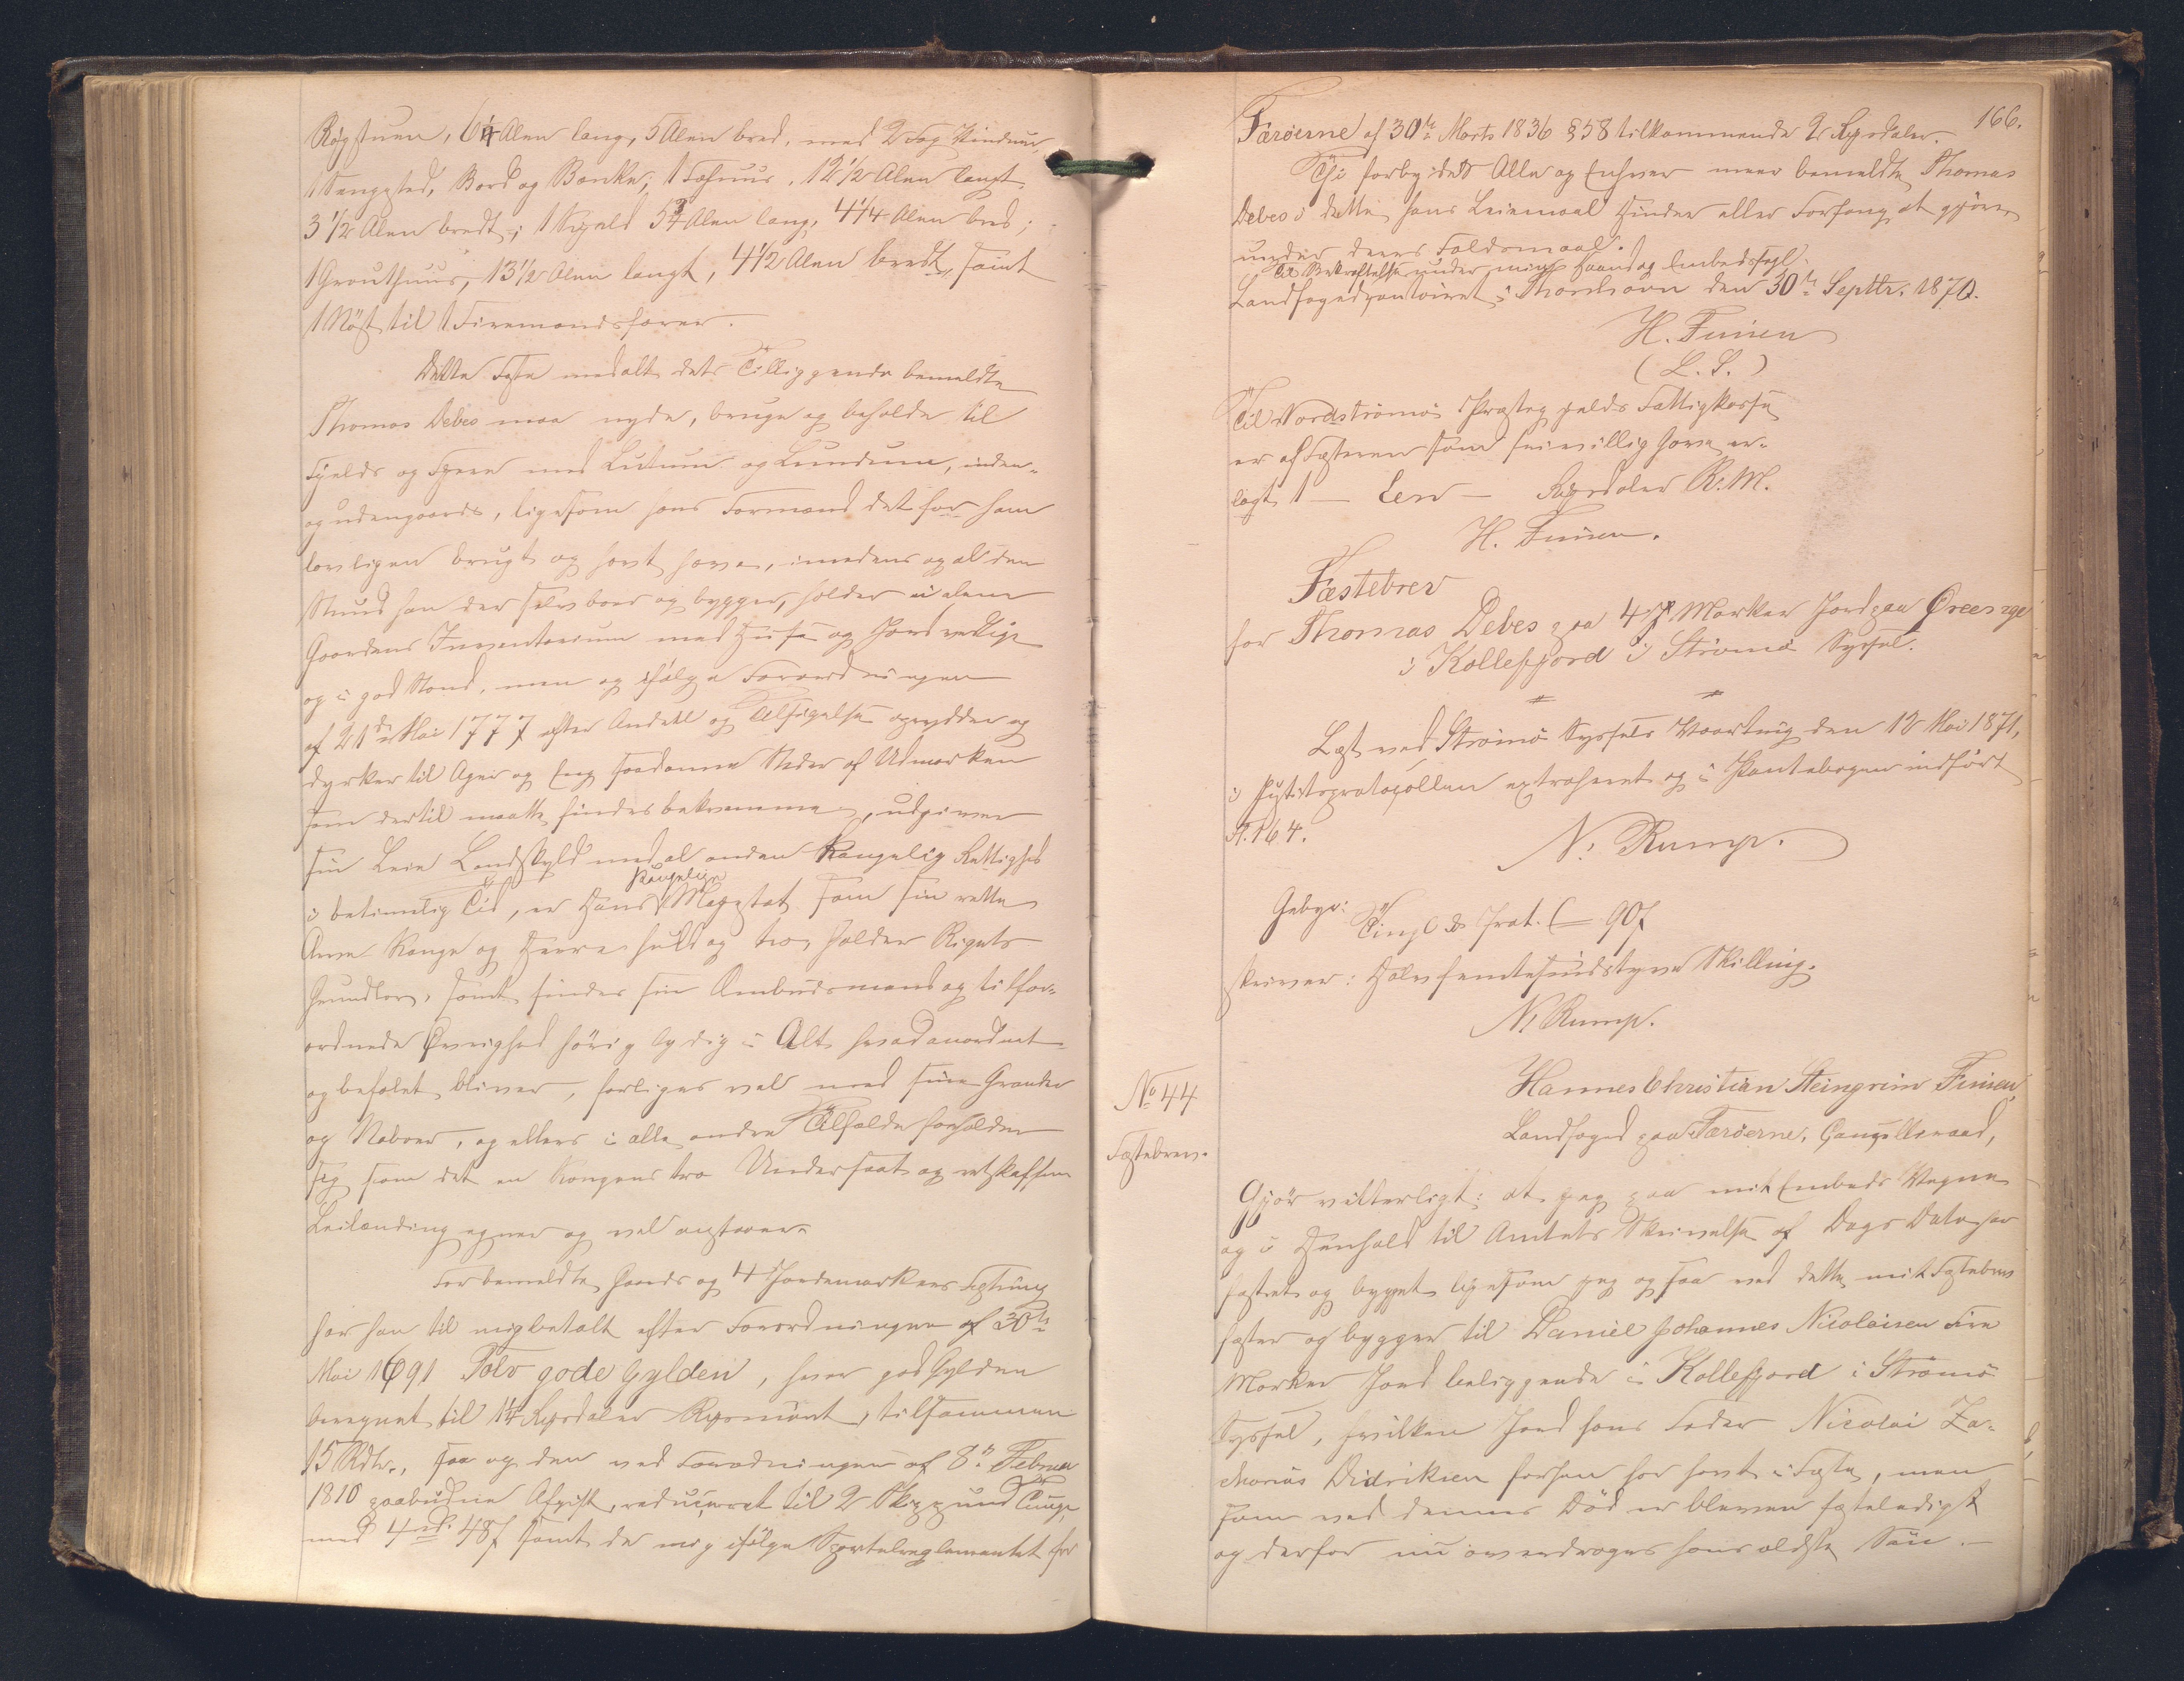 Røgstuen, 6¼ Alen lang, 5 Alen bred, med 2 Fag Vinduer,
1 Sengsted, Bord og Bænke; 1 Fæhuus, 12½ Alen langt,
3½ Alen bredt; 1 Hjald 5¾ Alen lang, 4¼ Alen bred;
1 Grouthuus, 13½ Alen langt, 4½ Alen bredt, samt
1 Nøst til 1 Firemandsfarer.
Dette Fæste med alt dets Tilliggende bemeldte
Thomas Debes maa nyde, bruge og beholde til
Fjelds og Fjære med Lutum og Lundum, inden-
og udengaards, ligesom hans Formand det før ham
lovligen brugt og havt haver, imedens og al den
Stund han der selv boer og bygger, holder ei alene
Gaardens Inventarium med Huse og Jord vedlige
og i god Stand, men og ifølge Forordningen
af 21de Mai 1777 efter Andeel og Tilsigelse oprydder og
dyrker til Ager og Eng saadanne Steder af Udmarken
som dertil maatte findes bekvemme, udgiver
sin Leie Landskyld med al anden Kongelig Rettighed
i betimelig Tid, er Hans Kongelige Majestæt som sin rette
Arve Konge og Herre huld og tro, holder Rigets
Grundlov, samt findes sin Ombudsmand og tilfor-
ordnede Øvrighed hørig lydig i Alt hvad anordnet
og befalet bliver, forliges vel med sine Grander
og Naboer, og ellers i alle andre Tilfælde forholder
sig som det en Kongens tro Undersaat og retskaffen
Leilænding egner og vel anstaaer.
For bemeldte Gaards og 4 Jordemarkers Fæstning
har han til mig betalt efter Forordningen af 30te
Mai 1691 Tolv gode Gylden, hver god Gylden
beregnet til 1¼ Rigsdaler Rigsmønt, tilsammen
15 Rdlr., saa og den ved Forordningen af 8de Februar
1810 paabudne Afgift, reduceret til 2 Skippund Tiunge,
med 4 rd. 48 ß samt de mig ifølge Sportelreglementet for
166.
Færøerne af 30te Marts 1836 § 58 tilkommende 2 Rigsdaler.
Thi forbydes Alle og Enhver meer bemeldte Thomas
Debes i dette hans Leiemaal Hinder eller Forfang at gjøre,
under deres Faldsmaal.
Til Bekræftelse under min Haand og Embedssegl.
Landfogedcontoiret i Thorshavn den 30te Septbr. 1870.
H. Finsen
(L. S.)
Til Nordstrømø Præstegjelds Fattigkasse
er af Fæsteren som frivillig Gave er-
lagt 1 — Een — Rigsdaler R. M.
H. Finsen.
Fæstebrev
for Thomas Debes paa 4 Marker Jord paa Øreenge
i Kollefjord i Strømø Syssel.
Læst ved Strømø Syssels Vaarting den 12 Mai 1871,
i Justitsprotocollen extraheret og i Pantebogen indført
Fl. 164.
N. Rump.
Gebyr:
Tingl & Prot. 90 ß
skriver: Halvfemtesindstyve Skilling.
N. Rump.
No 44
Fæstebrev.
Hannes Christian Steingrim Finsen,
Landfoged paa Færøerne, Cancelliraad,
Gjør vitterligt: at jeg paa mit Embeds Vegne
og i Henhold til Amtets Skrivelse af Dags Dato har
fæstet og bygget ligesom jeg og saa ved dette mit Fæstebrev
fæster og bygger til Daniel Johannes Nicolaisen Fire
Marker Jord beliggende i Kollefjord i Strømø
Syssel, hvilken Jord hans Fader Nicolai Za-
charias Didriksen forhen har havt i Fæste, men
som ved dennes Død er bleven fæsteledigt
og derfor nu overdrages hans ældste Søn.